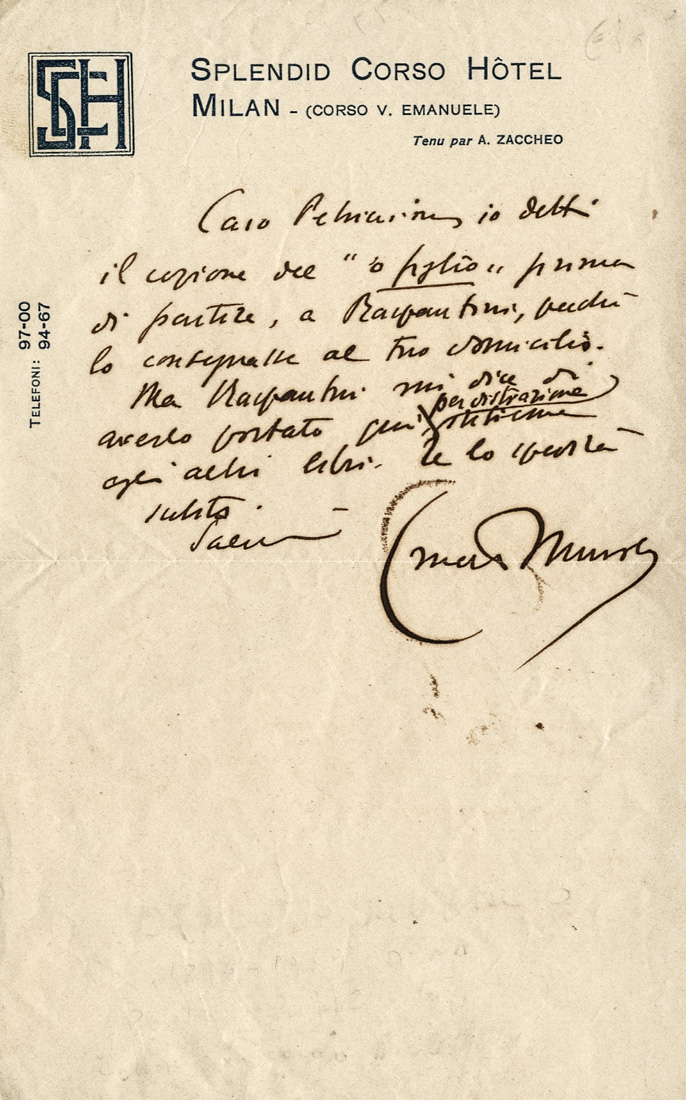 SH
SPLENDID CORSO HÔTEL
MILAN - (CORSO V. EMANUELE)
Tenu par A. ZACCHEO
TELEFONI: 97-00
94-67
Caro io detti
il copione del " 'o figlio " prima
di partire, a perché
lo consegnasse al tuo domicilio.
Ma mi dice di
averlo portato qui per distrazione
agli altri libri. Te lo spedirà
subito.
Saluti